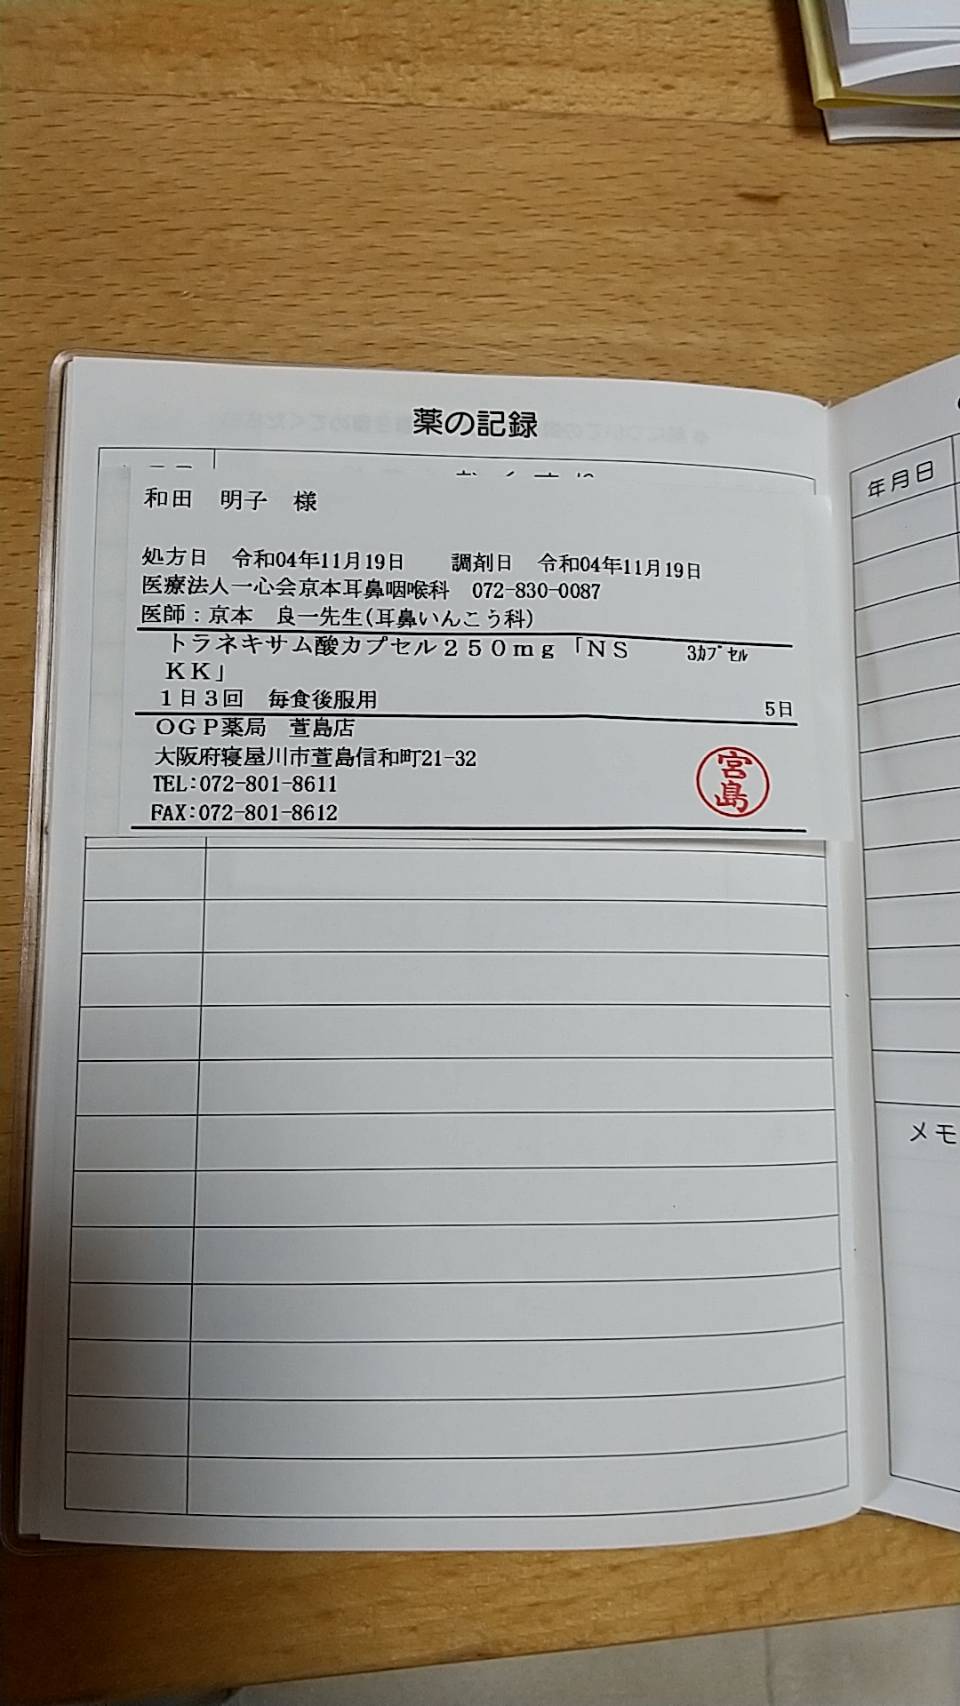 薬の記録
和田 明子 様
処方日 令和04年11月19日 調剤日 令和04年11月19日
医療法人一心会京本耳鼻咽喉科 072-830-0087
医師：京本 良一先生(耳鼻いんこう科)
トラネキサム酸カプセル２５０ｍｇ「ＮＳ 3ｶﾌﾟｾﾙ
ＫＫ」
１日３回 毎食後服用 5日
ＯＧＰ薬局 萱島店
大阪府寝屋川市萱島信和町21-32
TEL:072-801-8611
FAX:072-801-8612
宮島
年月日
メモ